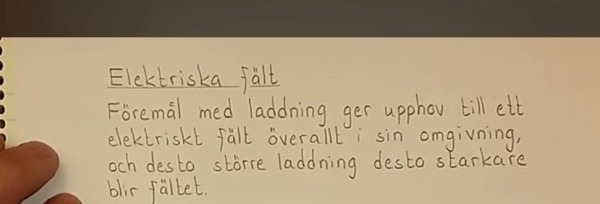 Elektriska fält
Föremål med laddning ger upphov till ett
elektriskt fält överallt i sin omgivning,
och desto större laddning desto starkare
blir fältet.